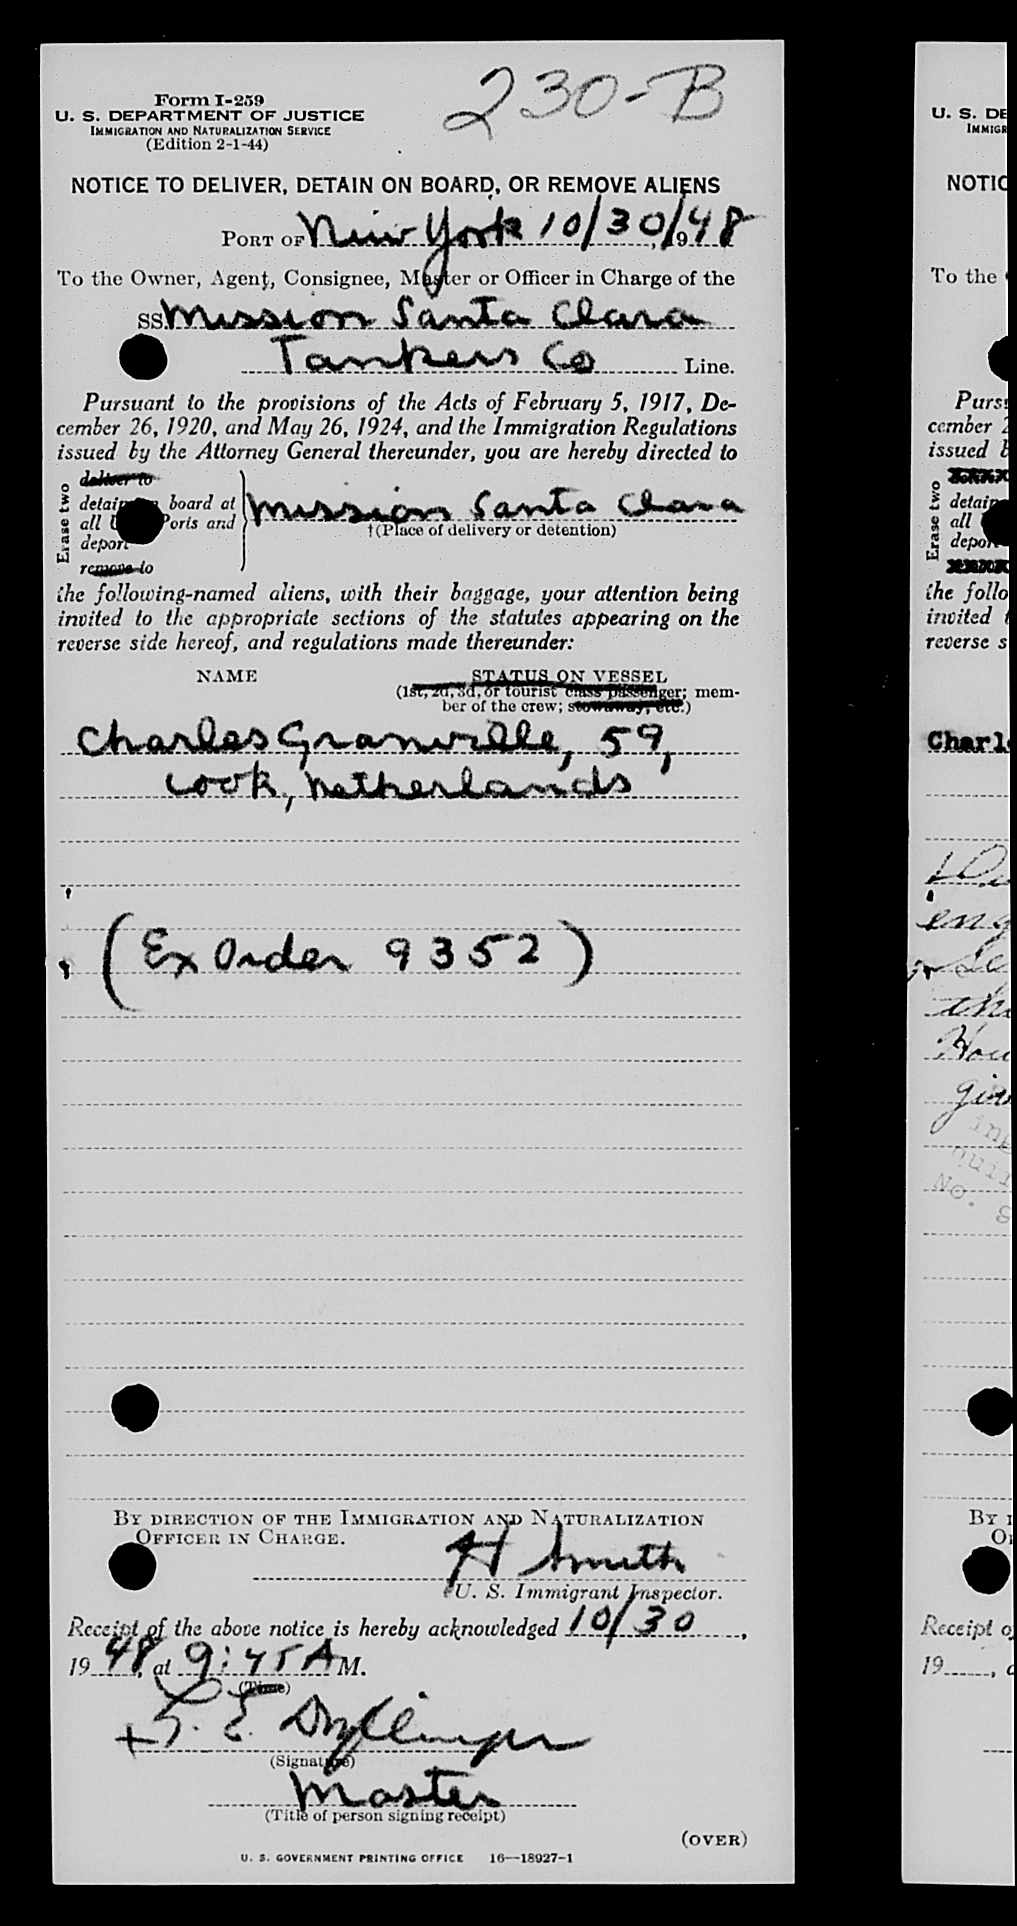 230-B
Form I-259
U. S. DEPARTMENT OF JUSTICE
IMMIGRATION AND NATURALIZATION SERVICE
(Edition 2-1-44)
NOTICE TO DELIVER, DETAIN ON BOARD, OR REMOVE ALIENS
PORT OF New York 10/30/, 1948
To the Owner, Agent, Consignee, Master or Officer in Charge of the
SS. Mission Santa Clara
Tankers Co Line.
Pursuant to the provisions of the Acts of February 5, 1917, De-
cember 26, 1920, and May 26, 1924, and the Immigration Regulations
issued by the Attorney General thereunder, you are hereby directed to
Erase two
deliver to
detain on board at
all U Ports and
deport
remove to
Mission Santa Clara
†(Place of delivery or detention)
the following-named aliens, with their baggage, your attention being
invited to the appropriate sections of the statutes appearing on the
reverse side hereof, and regulations made thereunder:
NAME STATUS ON VESSEL
(1st, 2d, 3d, or tourist class passenger; mem-
ber of the crew; stowaway, etc.)
Charles Granville, 59,
Cook, Netherlands
(Ex Order 9352)
BY DIRECTION OF THE IMMIGRATION AND NATURALIZATION
OFFICER IN CHARGE.
H Smith
U. S. Immigrant Inspector.
Receipt of the above notice is hereby acknowledged 10/30,
1948, at 9:45 A M.
(Time)
(Signature)
Master
(Title of person signing receipt)
(OVER)
U. S. GOVERNMENT PRINTING OFFICE 16—18927-1
U. S. DE
IMMIGR
NOTIC
To the
Purs
cember 2
issued b
Erase two
detain
all
depor
the follo
invited t
reverse s
Charl
eng
How
giv
No. S
BY
Receipt o
19